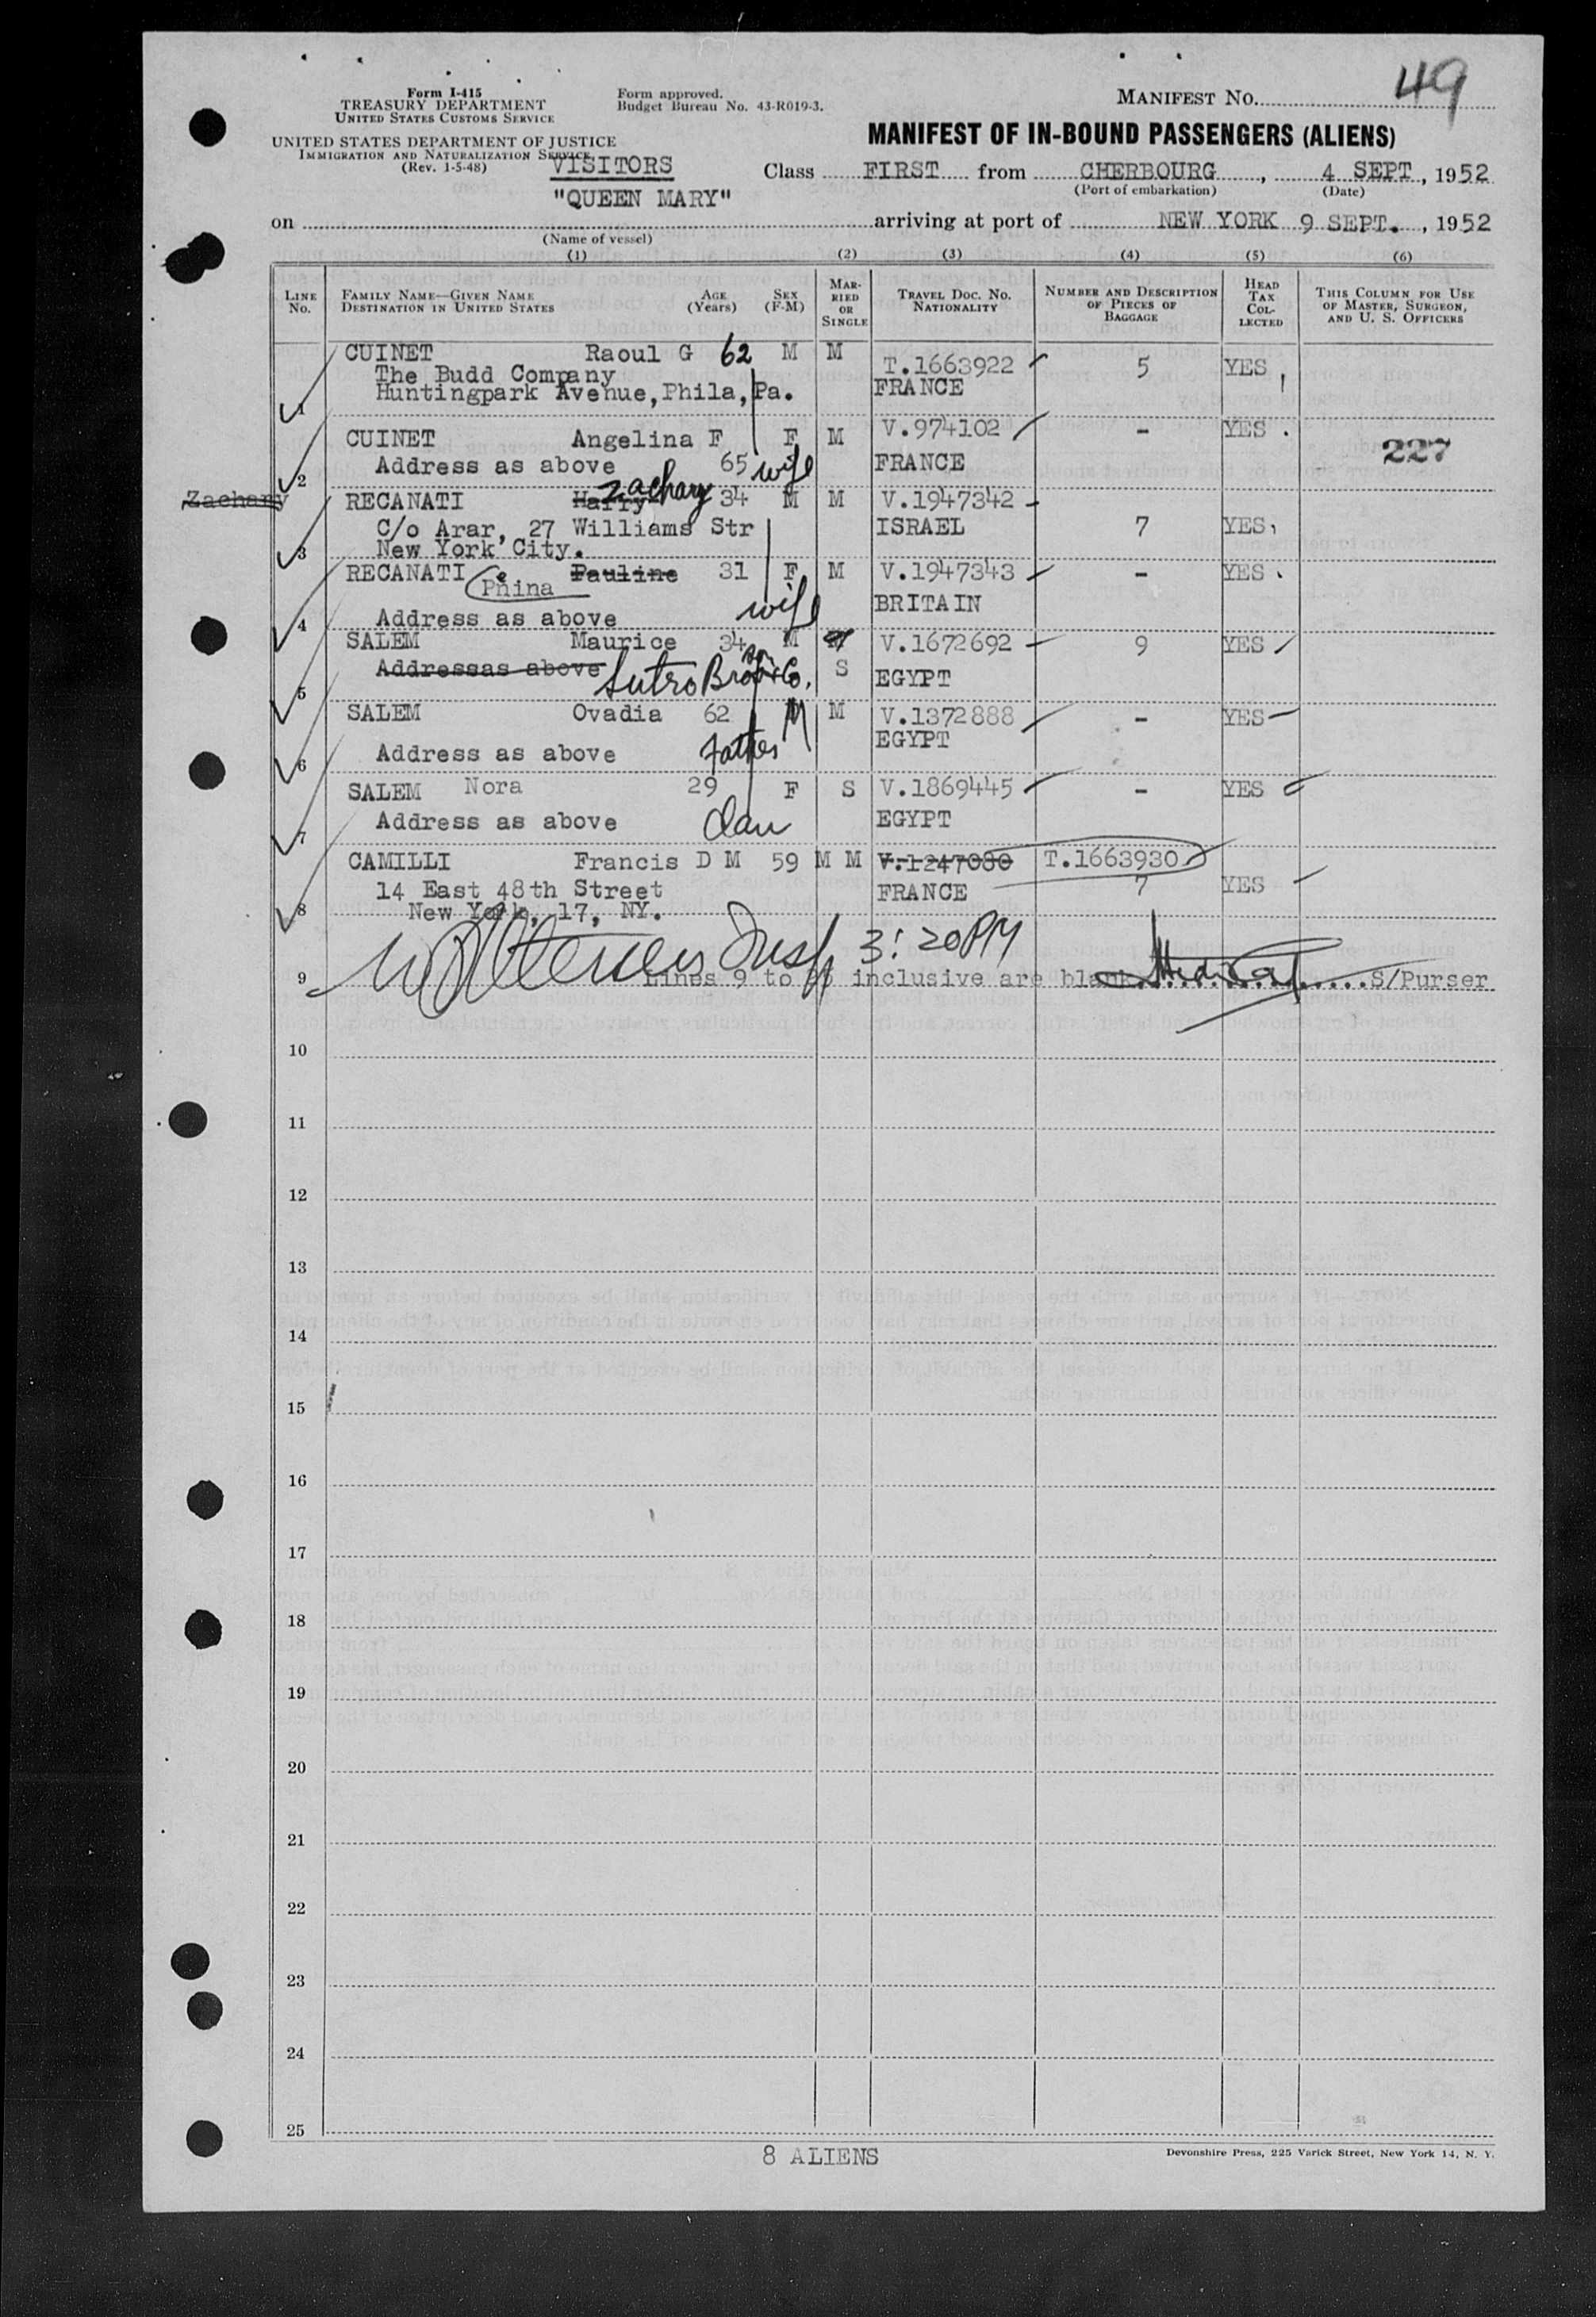 49
Form I-415
TREASURY DEPARTMENT
UNITED STATES CUSTOMS SERVICE
Form approved.
Budget Bureau No. 43-R019-3.
MANIFEST NO.
UNITED STATES DEPARTMENT OF JUSTICE
IMMIGRATION AND NATURALIZATION SERVICE
(Rev. 1-5-48)
MANIFEST OF IN-BOUND PASSENGERS (ALIENS)
VISITORS
Class FIRST from CHERBOURG, 4 SEPT, 1952
(Port of embarkation) (Date)
"QUEEN MARY"
on arriving at port of NEW YORK 9 SEPT., 1952
(Name of vessel)
(1) (2) (3) (4) (5) (6)
LINE NO. FAMILY NAME—GIVEN NAME DESTINATION IN UNITED STATES AGE (Years) SEX (F-M) MARRIED OR SINGLE TRAVEL DOC. NO. NATIONALITY NUMBER AND DESCRIPTION OF PIECES OF BAGGAGE HEAD TAX COLLECTED THIS COLUMN FOR USE OF MASTER, SURGEON, AND U. S. OFFICERS
CUINET Raoul G 62 M M T.1663922 5 YES
The Budd Company FRANCE
1 Huntingpark Avenue, Phila, Pa.
CUINET Angelina F F M V.974102 - YES 227
2 Address as above 65 wife FRANCE
Zachary RECANATI Harry Zachary 34 M M V.1947342
C/o Arar, 27 Williams Str ISRAEL 7 YES
3 New York City.
RECANATI Pauline 31 F M V.1947343 - YES
Pnina
4 Address as above wife BRITAIN
SALEM Maurice 34 M M V.1672692 9 YES
5 Addressas above Sutro Bros & Co. S EGYPT
SALEM Ovadia 62 M M V.1372888 - YES
6 Address as above Father EGYPT
SALEM Nora 29 F S V.1869445 - YES
7 Address as above dau EGYPT
CAMILLI Francis D M 59 M M V.1247080 T.1663930
14 East 48th Street FRANCE 7 YES
8 New York, 17, NY.
Insp 3:20PM
9 Lines 9 to 25 inclusive are blank S/Purser
10
11
12
13
14
15
16
17
18
19
20
21
22
23
24
25
8 ALIENS
Devonshire Press, 225 Varick Street, New York 14, N. Y.